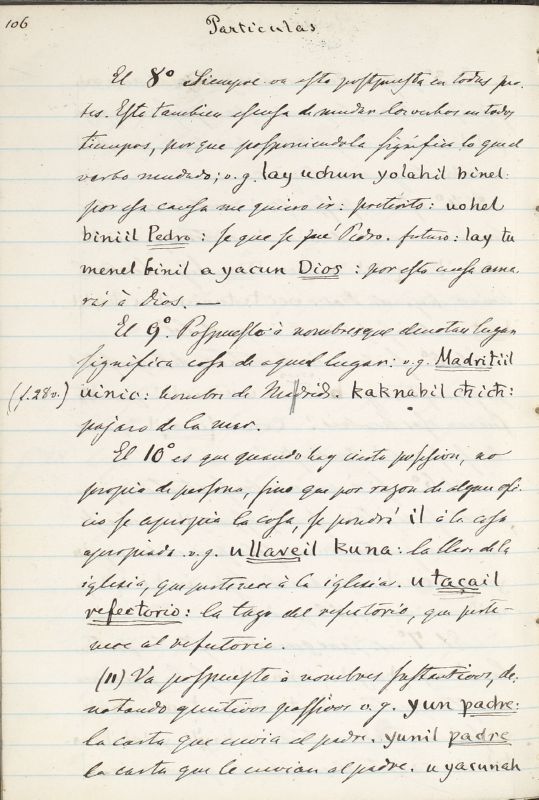 106
Particulas
El 8° Siempre va esta postpuesta en todas par-
tes. Este tambien escusa de mudar los verbos en todos
tiempos, porque posponiendola significa lo que el
verbo mudado; v.g. lay uchun yolahil binel:
por esa causa me quiero ir: preterito: uohel
biniil Pedro: se que se fué Pedro. futuro: lay tu
menel binil a yacun Dios: por esta causa ama-
rás à Dios. —
El 9°. Pospuesto à nombres que denotan lugar
significa cosa de aquel lugar: v.g. Madritiil
(f. 28 v.) uinic: hombre de Madrid. kaknabil chich:
pajaro de la mar.
El 10° es que quando hay cierta possesion, no
propia de persona, sino que por razon de algun ofi-
cio se apropia la cosa, se pondrá il à la cosa
apropiada. v.g. u llaveil kuna: la llave de la
iglesia, que pertenece à la iglesia. u taçail
refectorio: la taza del refectorio, que perte-
nece al refectorio.
(11) Va pospuesto à nombres substantivos, de-
notando genitivos passivos v.g. yun padre:
la carta que envia el padre. yunil padre
la carta que le envian al padre. u yacunah